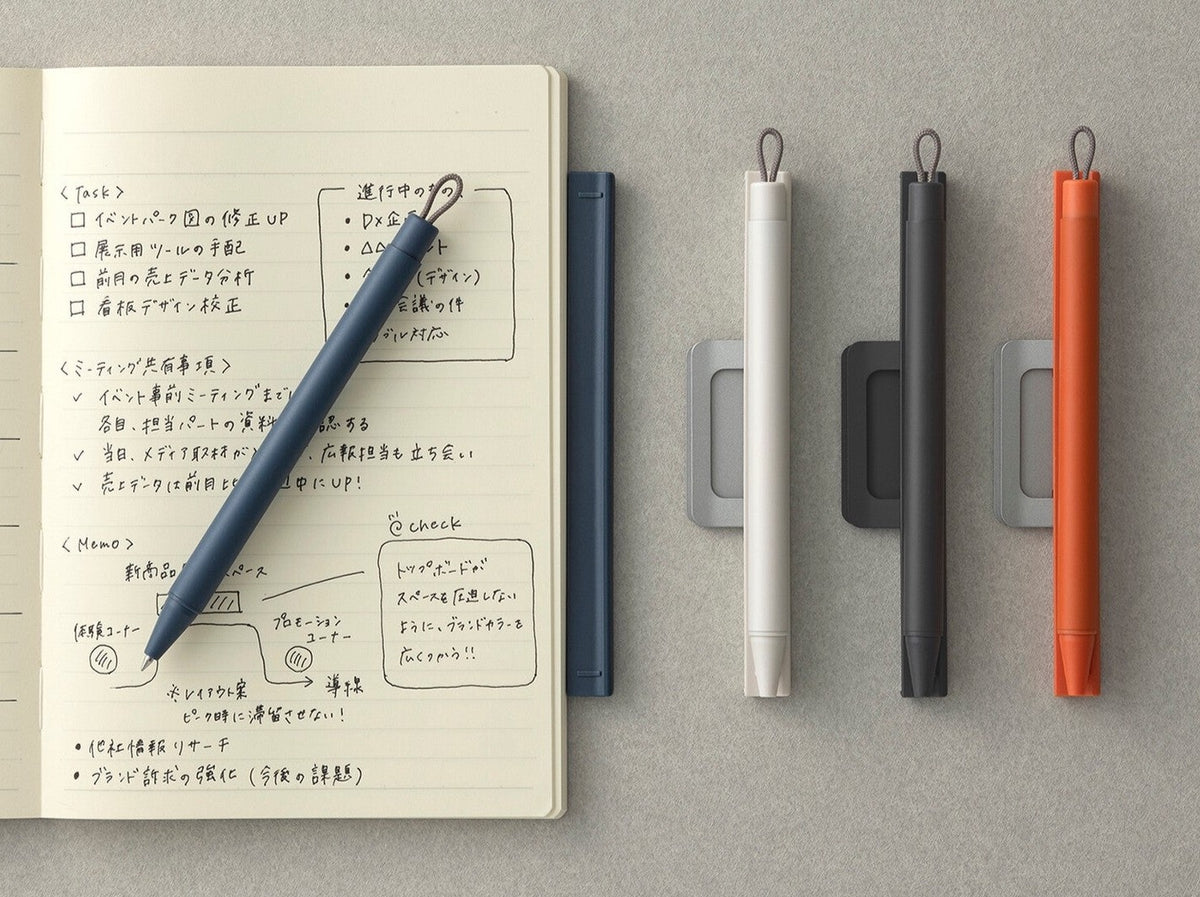 〈Task〉
□ イベントパーク図の修正UP
□ 展示用ツールの手配
□ 前月の売上データ分析
□ 看板デザイン校正
進行中のもの
• DX企
• △△ ント
• (デザイン)
• 会議の件
ブル対応
〈ミーティング共有事項〉
✓ イベント事前ミーティングまで
各自、担当パートの資料 認する
✓ 当日、メディア取材が 、広報担当も立ち会い
✓ 売上データは前月比 中にUP!
〈Memo〉
新商品 スペース
体験コーナー
プロモーション
コーナー
※レイアウト案
導線
ピーク時に滞留させない!
check
トップボードが
スペースを圧迫しない
ように、ブランドカラーを
広くつかう!!
• 他社情報リサーチ
• ブランド訴求の強化(今後の課題)